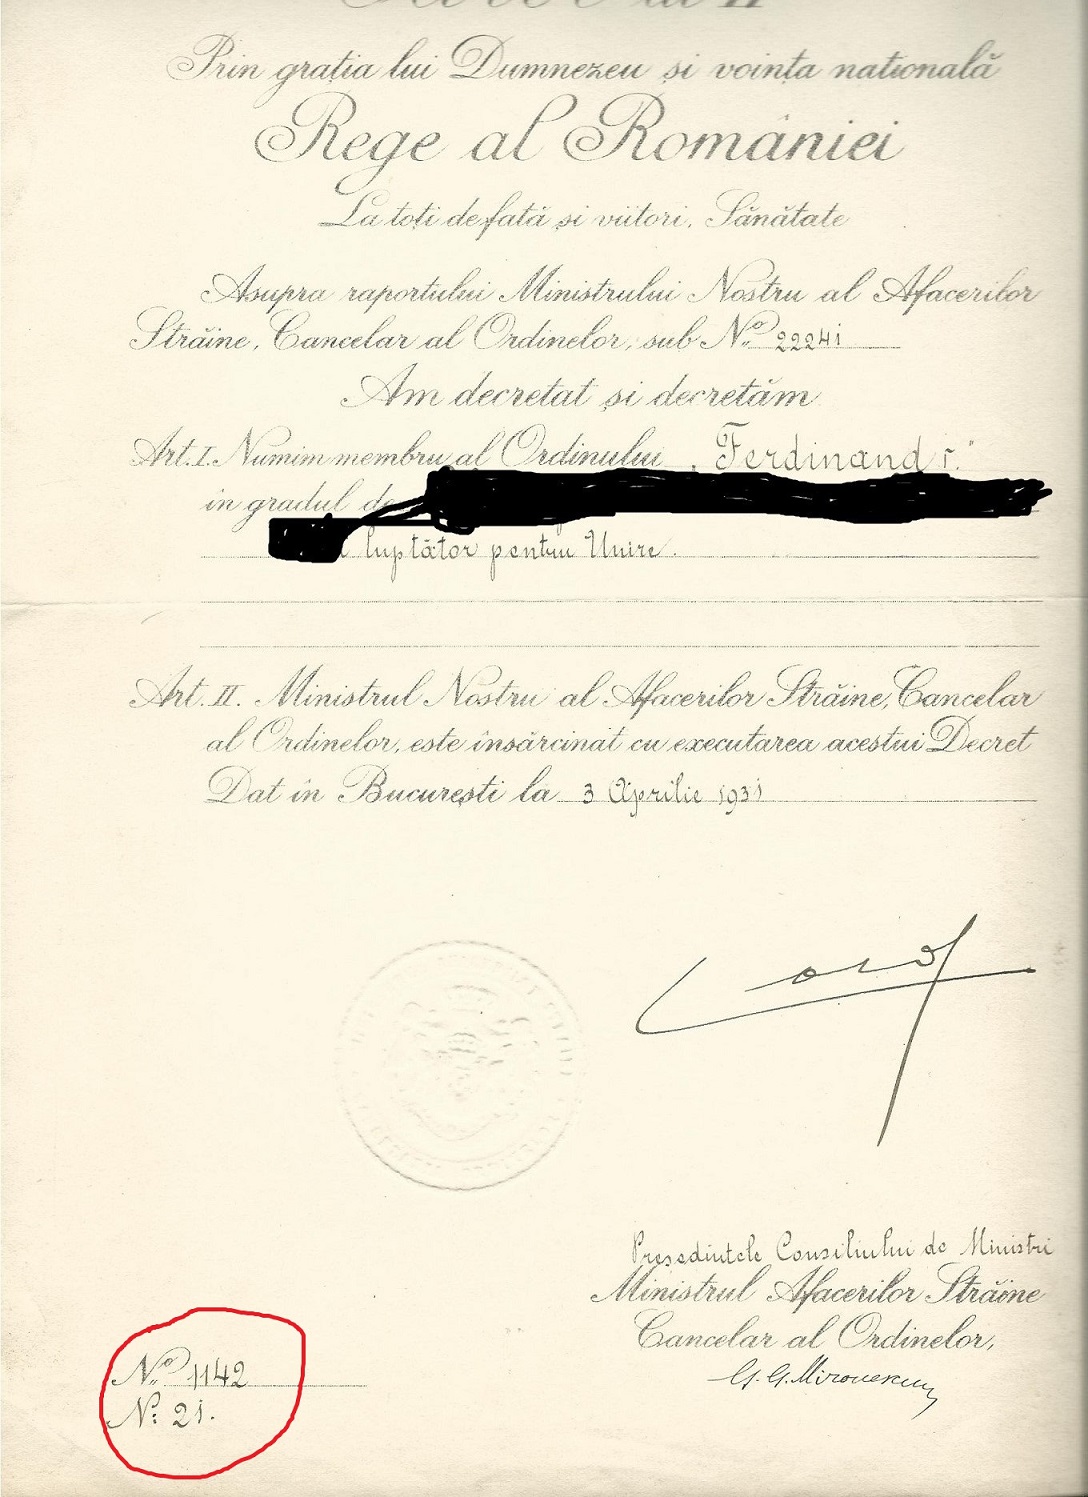 Carol al II
Prin grația lui Dumnezeu și voința națională
Rege al României
La toți de față și viitori, Sănătate
Asupra raportului Ministrului Nostru al Afacerilor
Străine, Cancelar al Ordinelor, sub No. 22241
Am decretat și decretăm
Art. I. Numim membru al Ordinului „Ferdinand I."
in gradul de
luptător pentru Unire.
Art. II. Ministrul Nostru al Afacerilor Străine, Cancelar
al Ordinelor, este însărcinat cu executarea acestui Decret
Dat în București la 3 Aprilie 1931
Carol
Președintele Consiliului de Miniștri
Ministrul Afacerilor Străine
Cancelar al Ordinelor,
G. G. Mironescu
No. 1142
No: 21.